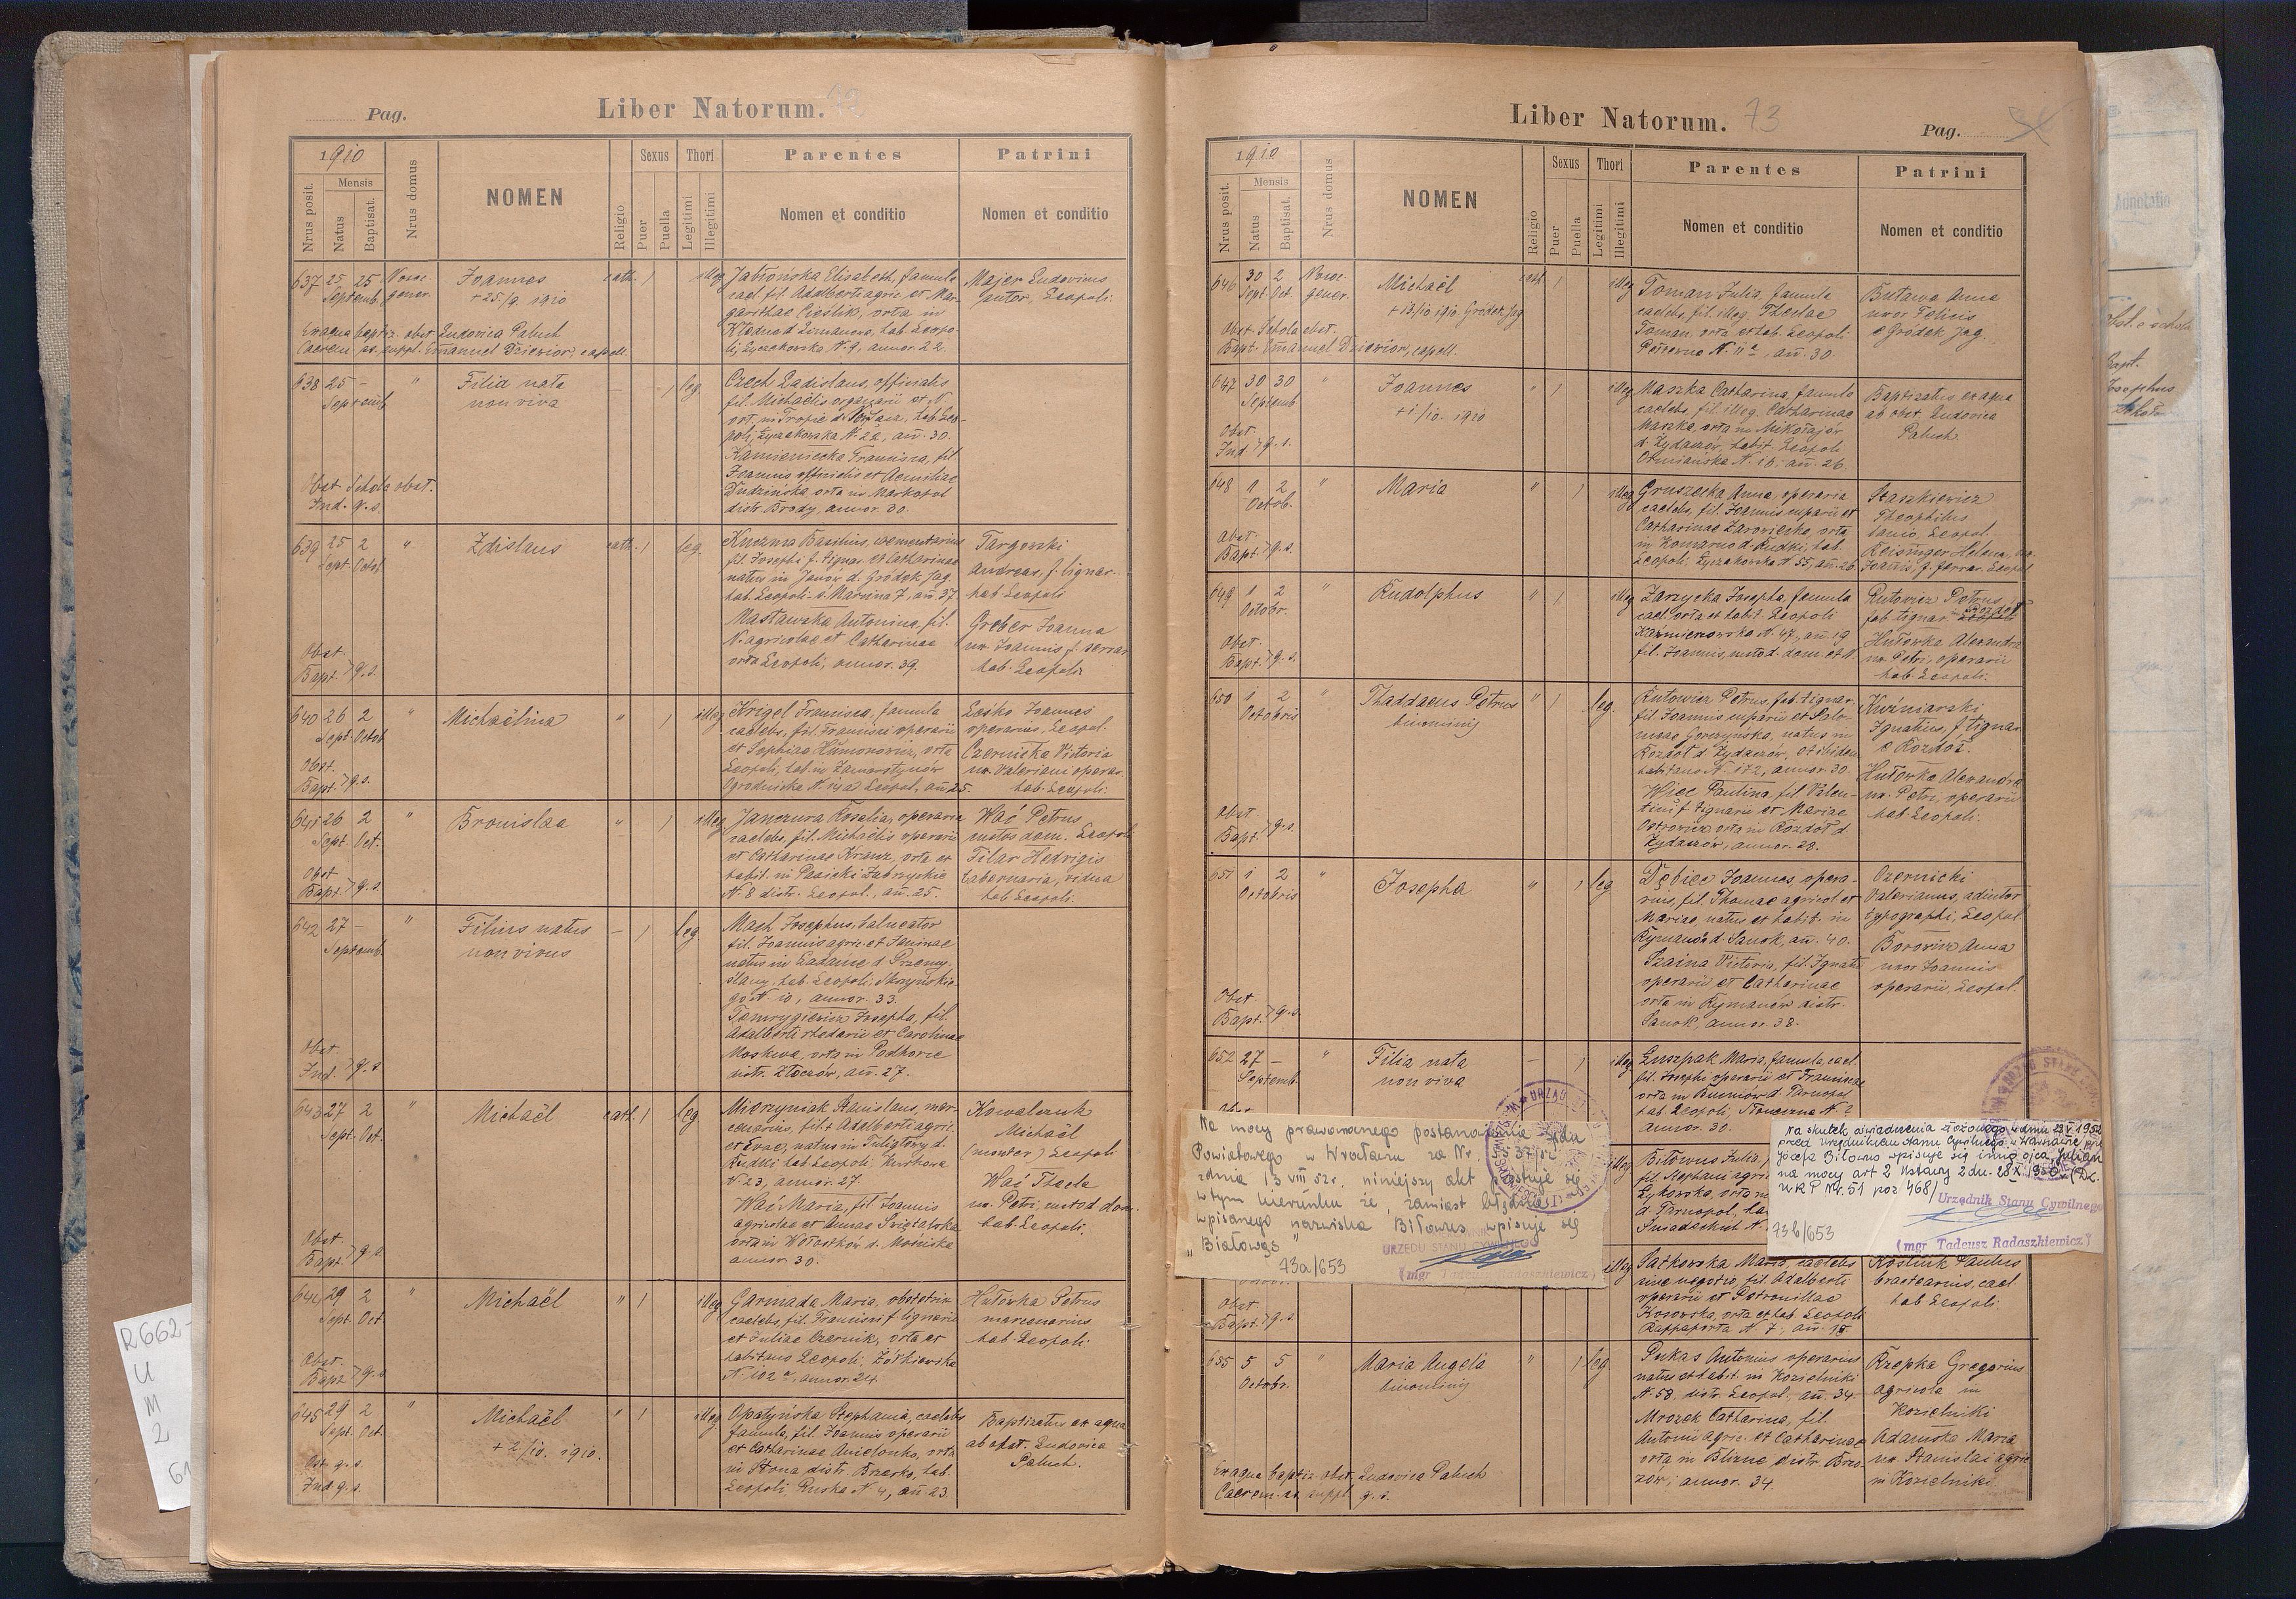 Pag.
Liber Natorum.
1910
Nrus posit.
Mensis
Natus
Baptisat.
Nrus domus
NOMEN
Religio
Sexus
Puer
Puella
Thori
Legitimi
Illegitimi
Parentes
Nomen et conditio
Patrini
Nomen et conditio
637 25 25
Septemb.
Joannes
+ 25/9 1910
cath. 1 illeg.
Jabłońska Elisabeth, famula
cael. fil. Adalberti agric. et Mar-
garithae Cieslik, orta in
d. Limanowa, hab. Leopo-
li, Łyczakowska N. 9, annor. 22.
Majer Ludovicus
sutor, Leopoli.
Ex aqua baptiz. obst. Ludovica Paluch
Caerem. ss. suppl. Emanuel Dziewior, capell.
638 25 –
Septemb.
"
Filia nata
non viva
– 1 leg.
Czech Ladislaus, officialis
fil. Michaëlis organarii et N.
hab. Leo-
poli, Łyczakowska N. 22, an. 30.
Kamieniecka Francisca, fil.
Joannis officialis et Aemiliae
Dudzińska orta in Markopol
distr. Brody, annor. 30.
Obst. Schola obst.
Ind. q. s.
639 25 2
Sept. Octob.
"
Zdislaus
cath. 1 leg.
Kuczma Basilius, caementarius
fil. Josephi f. lignar. et Catharinae
natus in Janów d. Gródek Jag.
hab. Leopoli s. Marcina 7, an. 37
Masławska Antonina, fil.
N. agricolae et Catharinae
orta Leopoli, annor. 39.
Targowski
Andreas, f. lignar.
hab. Leopoli
Greber Joanna
ux. Joannis f. ferrar.
hab. Leopoli
Obst.
Bapt. q. s.
640 26 2
Sept. Octob.
"
Michaëlina
" 1 illeg.
Krigel Francisca, famula
caelebs, fil. Francisci operarii
et Sophiae Klimonowicz, orta
Leopoli, hab. in Zamarstynów
Ogrodnicka N. d. Leopol., an. 25.
Leśko Joannes
operarius, Leopol.
Czernicka Victoria
ux. Valeriani operar.
hab. Leopoli.
Obst.
Bapt. q. s.
641 26 2
Sept. Oct.
"
Bronislaa
" 1 illeg.
Janczura Rosalia, operaria
caelebs, fil. Michaëlis operarii
et Catharinae Kranz, orta et
habit. in Pasieki Zubrzyckie
N. 8 distr. Leopol., an. 25.
Wać Petrus
custos dom. Leopoli
Filar Hedvigis
tabernaria, vidua
hab. Leopoli.
Obst.
Bapt. q. s.
642 27 –
Septemb.
"
Filius natus
non vivus
– 1 leg.
Mach Josephus, balneator
fil. Joannis agric. et Janinae
natus in d. Przemy-
ślany, hab. Leopoli,
go N. 10, annor. 33.
Josepha, fil.
Adalberti rhedarii et Carolinae
Moskwa, orta in Podhorce
distr. Złoczów, an. 27.
Obst.
Ind. q. s.
643 27 2
Sept. Oct.
"
Michaël
cath. 1 leg.
Mierzyniak Stanislaus, mer-
cenarius, fil. + Adalberti agric.
et Evae, natus in Tuligłowy d.
Rudki hab. Leopoli, Kurkowa
N. 23, annor. 27.
Wać Maria, fil. Joannis
agricolae et Annae
orta in Wołostków d. Mościska
annor. 30.
Kowalczuk
Michaël
(monter) Leopoli
Wać Thecla
ux. Petri, custod. dom.
hab. Leopoli.
Obst.
Bapt. q. s.
644 29 2
Sept. Oct.
"
Michaël
" 1 illeg.
Garmada Maria, obstetrix
caelebs, fil. Francisci f. lignarii
et Juliae Czernik, orta et
habitans Leopoli, Żółkiewska
N. 102 a, annor. 24.
Hutowka Petrus
mercenarius
hab. Leopoli.
Obst.
Bapt. q. s.
645 29 2
Sept. Oct.
"
Michaël
+ 2/10. 1910.
" 1 illeg.
Opatyńska Stephania, caelebs
famula, fil. Joannis operarii
et Catharinae, orta
in Słona, distr. Brzesko, hab.
Leopoli Ruska N. 4, an. 23.
Baptizatus ex aqua
ab obst. Ludovica
Paluch.
Obst. q. s.
Ind. q. s.
Liber Natorum. 73
Pag.
1910
Nrus posit.
Mensis
Natus
Baptisat.
Nrus domus
NOMEN
Religio
Sexus
Puer
Puella
Thori
Legitimi
Illegitimi
Parentes
Nomen et conditio
Patrini
Nomen et conditio
646 30 2
Sept. Oct.
Michaël
+ 13/10 1910. Gródek Jag
cath. 1 illeg.
Toman Julia, famula
caelebs, fil. illeg. Theclae
Toman, orta et hab. Leopoli
N. 11 a, an. 30.
Butawa Anna
uxor Felicis
e Gródek Jag.
Obst. Schola obst.
Bapt. Emanuel Dziewior, capell.
647 30 30
Septemb.
"
Joannes
+ 1/10. 1910
" 1 illeg.
Maszka Catharina, famula
caelebs, fil. illeg. Catharinae
Maszka, orta in Mikołajów
d. Żydaczów, habit. Leopoli
Ormiańska N. 16, an. 26.
Baptizatus ex aqua
ab obst. Ludovica
Paluch
Obst.
Ind. q. s.
648 1 2
Octob.
"
Maria
" 1 illeg.
Gruszecka Anna, operaria
caelebs, fil. Joannis cuparii et
Catharinae, orta
in Komarno d. Rudki, hab.
Leopoli, Łyczakowska N. 55, an. 26.
Staszkiewicz
Theophilus
lanio, Leopol.
Reisinger Helena, ux.
Joannis, f. ferrar. Leopol
Obst.
Bapt. q. s.
649 1 2
Octobr.
"
Rudolphus
" 1 illeg.
Zarzycka Josepha, famula
cael. orta et habit. Leopoli
Kazmierzowska N. 47, an. 19
fil. Joannis, custod. dom. et N.
Rutowicz Petrus
fab. lignar. Rozdół
Hutowka Alexandra
ux. Petri, operarii
hab. Leopoli.
Obst.
Bapt. q. s.
650 1 2
Octobris
"
Thaddaeus Petrus
binominis
" 1 leg.
Rutowicz Petrus, fab. lignar.
fil. Joannis cuparii et Salo-
meae Gorczyńska, natus in
Rozdół d. Żydaczów, et ibidem
habitans N. 172, annor. 30.
Wiec Paulina, fil. Valen-
tini f. lignarii et Mariae
Ostrowicz, orta in Rozdół d.
Żydaczów, annor. 28.
Kuźniarski
Ignatius, f. lignar.
e Rozdół.
Hutowka Alexandra
ux. Petri, operarii
hab. Leopoli.
Obst.
Bapt. q. s.
651 1 2
Octobris
"
Josepha
" 1 leg.
Dębiec Joannes, opera-
rius, fil. Thomae agricol. et
Mariae natus et habit. in
Rymanów d. Sanok, an. 40.
Szaina Victoria, fil. Ignatii
operarii et Catharinae
orta in Rymanów distr.
Sanok, annor. 38.
Czernicki
Valerianus, adiutor
typographi, Leopol.
Borowicz Anna
uxor Joannis
operarii, Leopol.
Obst.
Bapt. q. s.
652 27 –
Septemb.
"
Filia nata
non viva
– 1 illeg.
Łuszpak Maria, famula, cael.
fil. Josephi operarii et Franciscae
orta in d. Tarnopol
hab. Leopoli, Słoneczna N. 2
annor. 30.
Na mocy prawomocnego postanowienia Sądu
Powiatowego w Wrocławiu za Nr.
z dnia 13 VIII 52 r. niniejszy akt prostuje się
w tym kierunku że, zamiast błędnie
wpisanego nazwiska Biłowus wpisuje się
"Białowąs"
73a/653
URZĘDU STANU CYWILNEGO
(mgr Tadeusz Radaszkiewicz)
illeg.
Biłowus Julia,
fil. Stephani agric
d. Tarnopol,
Śniadeckich N.
Na skutek oświadczenia złożonego w dniu 23 V 1952
przed Urzędnikiem Stanu Cywilnego w Warszawie przy
Józefa Biłowus wpisuje się imię ojca "Julian"
na mocy art 2 Ustawy z dn. 28 X 1950 (Dz.
U R P Nr. 51 poz 468)
73b/653
Urzędnik Stanu Cywilnego
(mgr Tadeusz Radaszkiewicz)
illeg
Patkowska Maria, caelebs
sine negotio, fil. Adalberti
operarii et Petronillae
Kosowska, orta et hab. Leopoli
Rappaporta N. 7, an. 18.
Kostiuk Paulus
bractearius, cael.
hab. Leopoli.
Obst.
Bapt. q. s.
655 5 5
Octobr.
"
Maria Angela
binominis
" 1 leg
Pukas Antonius operarius
natus et habit. in Kozielniki
N. 58, distr. Leopol., an. 34.
Mrozek Catharina, fil.
Antonii agric. et Catharinae
orta in Blizne distr. Brzo-
zów, annor. 34.
Rzepka Gregorius
agricola in
Kozielniki
Adamska Maria
ux. Stanislai agric
in Kozielniki.
Ex aqua baptiz. obst. Ludovica Paluch
Caerem. ss. suppl. q. s.
R 662-
U
M
2
61
Adnotatio